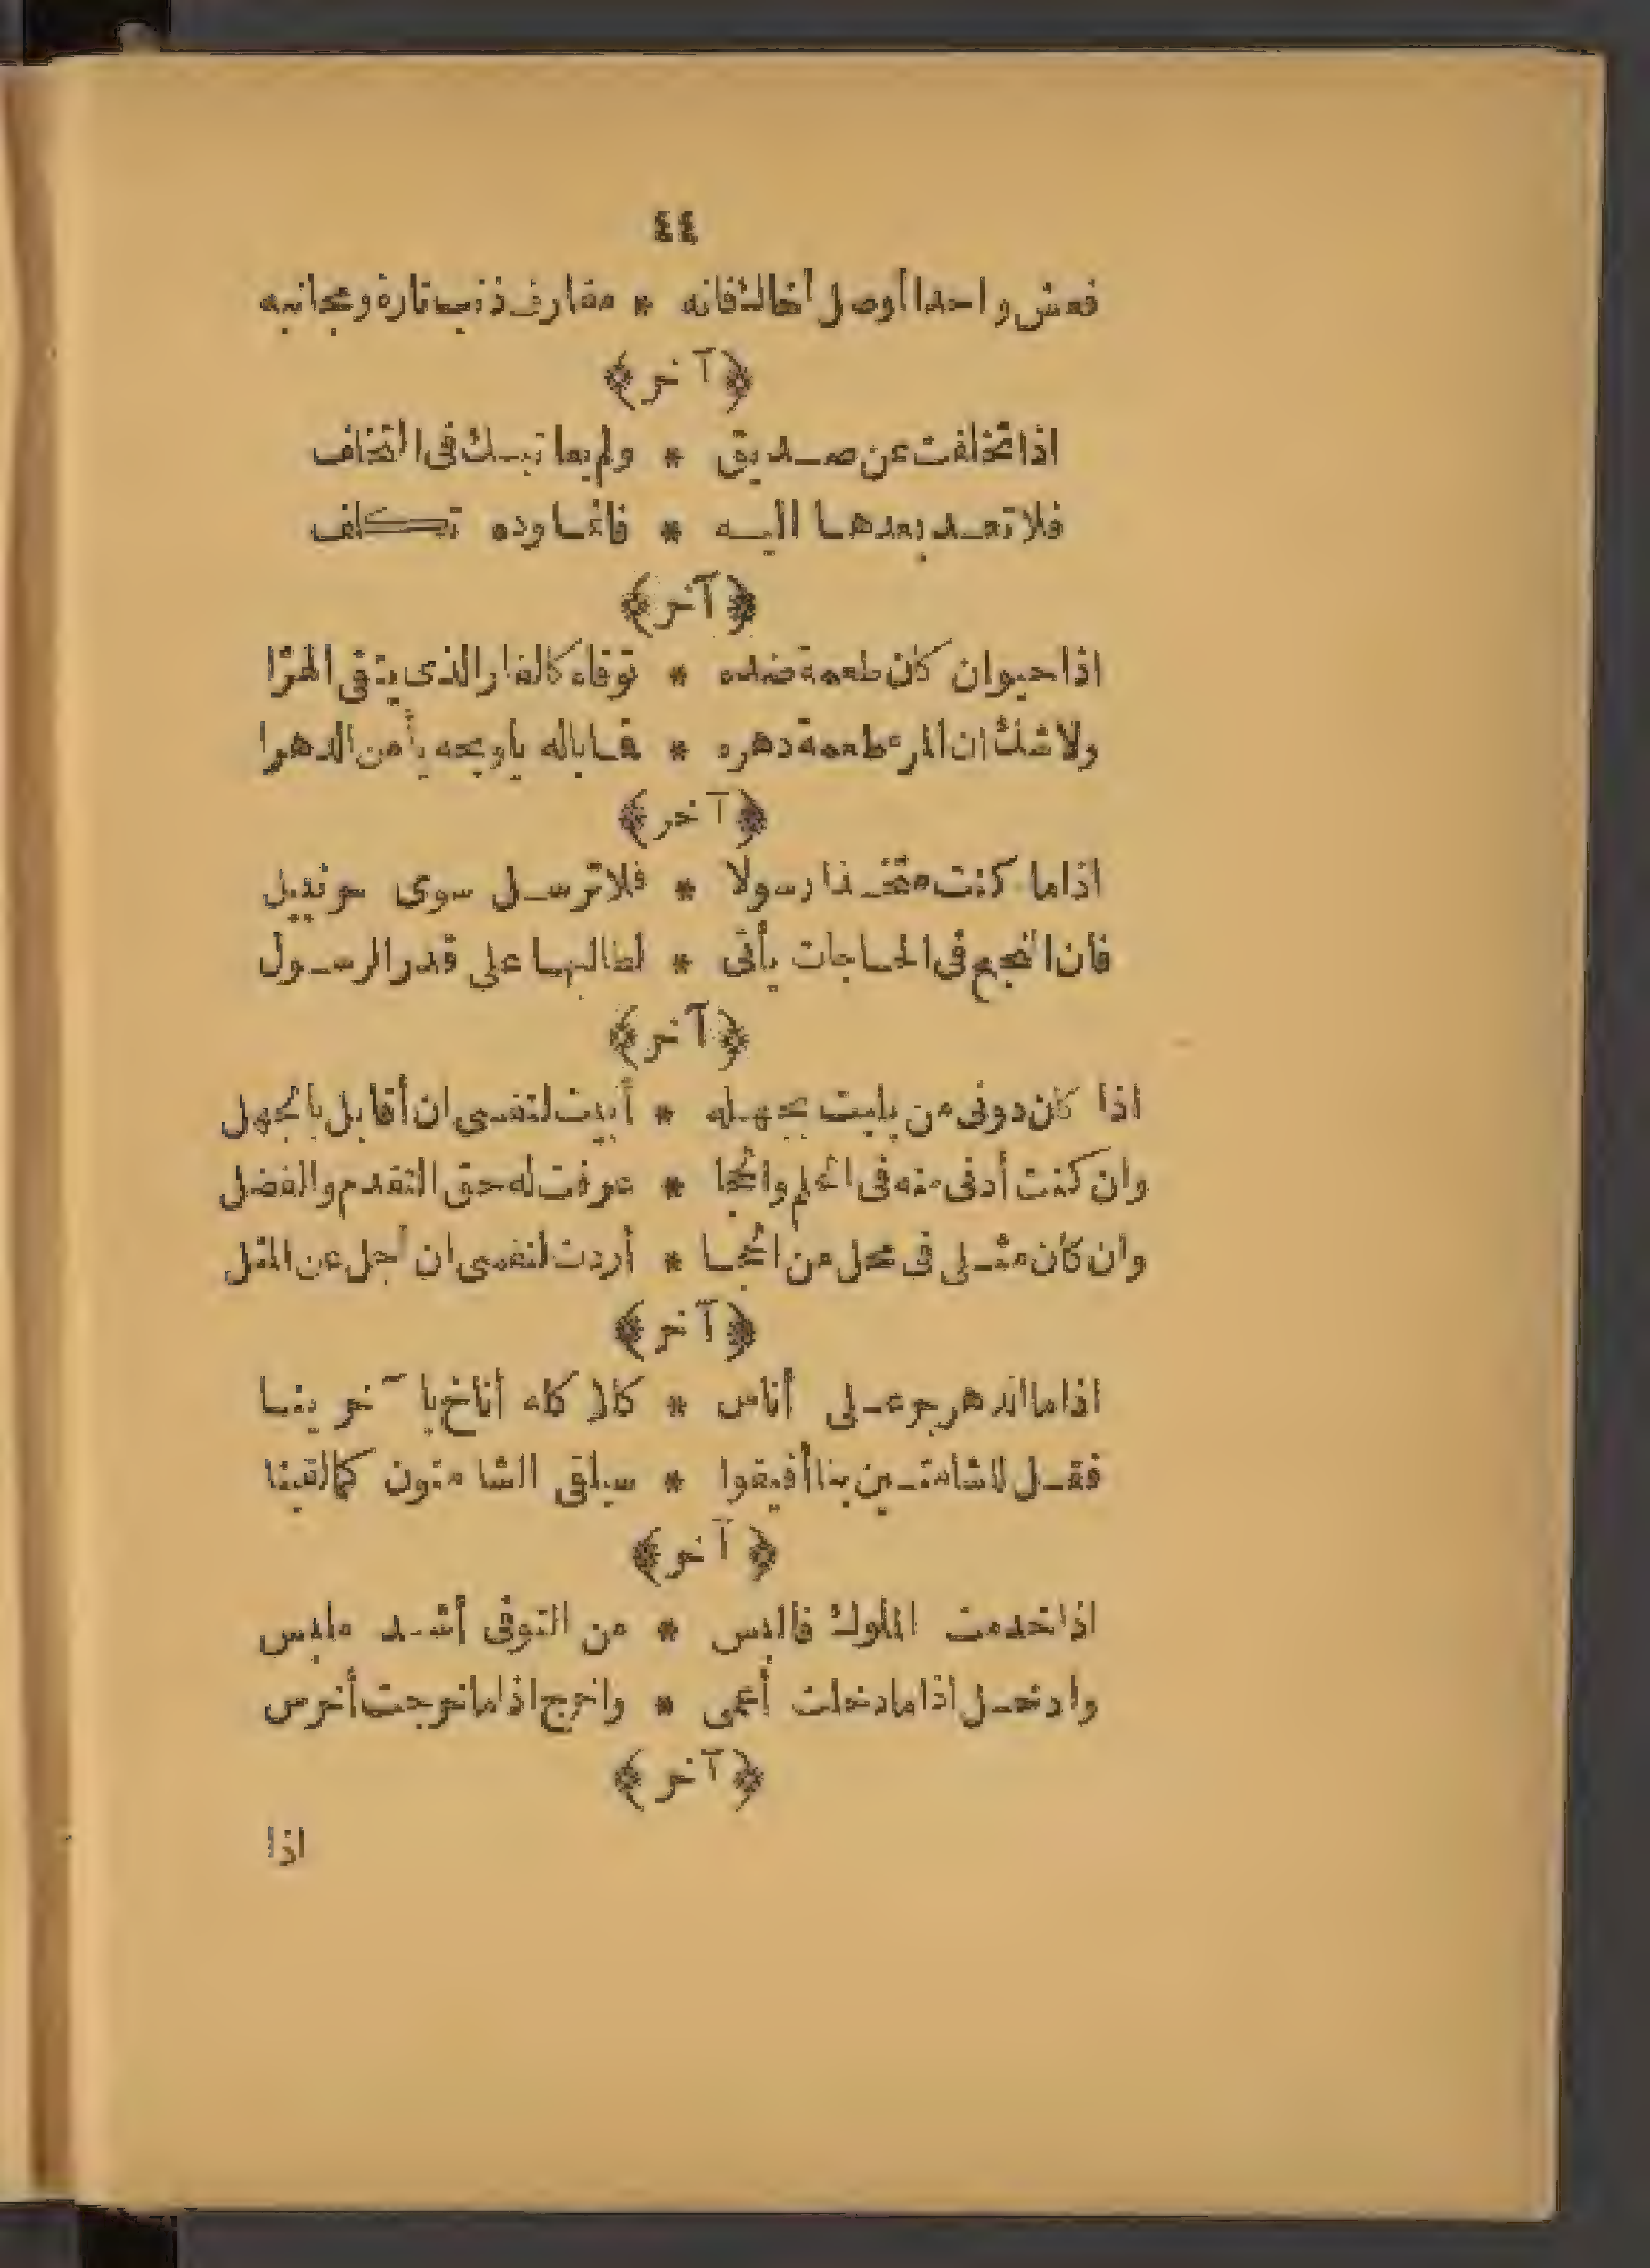 ٤٤
فعش واحدا أوصل أخاك فانه * مقارف ذنب تارة ومجانبه
﴿آخر﴾
اذا تخلفت عن صديق * ولم يعاتبك فى التخلف
فلا تعد بعدها اليه * فانما وده تكلف
﴿آخر﴾
اذا حيوان كان طعمة ضده * توقاه كالفار الذى يتقى الهرا
ولا شك ان المرء طعمة دهره * فما باله ياويحه يأمن الدهرا
﴿آخر﴾
اذا ما كنت متخذا رسولا * فلا ترسل سوى حر نبيل
فان النجح فى الحاجات يأتى * لطالبها على قدر الرسول
﴿آخر﴾
اذا كان دونى من بليت بجهله * أبيت لنفسى ان أقابل بالجهل
وان كنت أدنى منه فى الحلم والحجا * عرفت له حق التقدم والفضل
وان كان مثلى فى محل من الحجا * أردت لنفسى ان أجل عن المثل
﴿آخر﴾
اذا ما الدهر جر على أناس * كلا كله أناخ بآخرينا
فقل للشامتين بنا أفيقوا * سيلقى الشامتون كما لقينا
﴿آخر﴾
اذا خدمت الملوك فالبس * من التوقى أشد ملبس
وادخل اذا ما دخلت أعمى * واخرج اذا ما خرجت أخرس
﴿آخر﴾
اذا